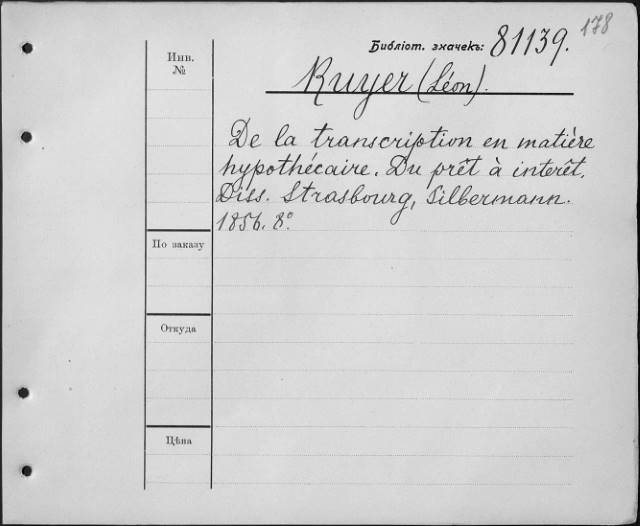 178
Библіот. значекъ: 81139.
Инв.
№
Ruyer (Léon).
De la transcription en matière
hypothécaire. Du prêt à interêt.
Diss. Strasbourg, Silbermann.
1856. 8°.
По заказу
Откуда
Цѣна